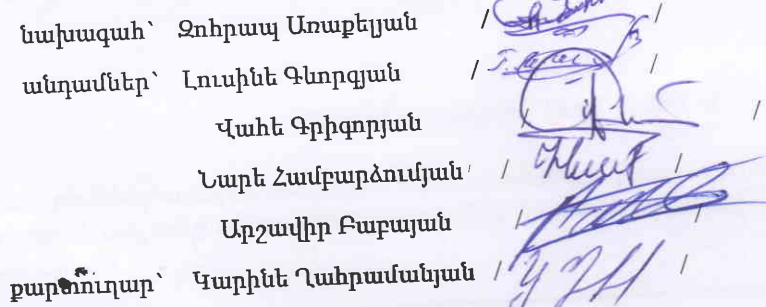 նախագահ՝ Զոհրապ Առաքելյան / /
անդամներ՝ Լուսինե Գևորգյան / /
Վահե Գրիգորյան / /
Նարե Համբարձումյան / /
Արշավիր Բաբայան / /
քարտուղար՝ Կարինե Ղահրամանյան / /